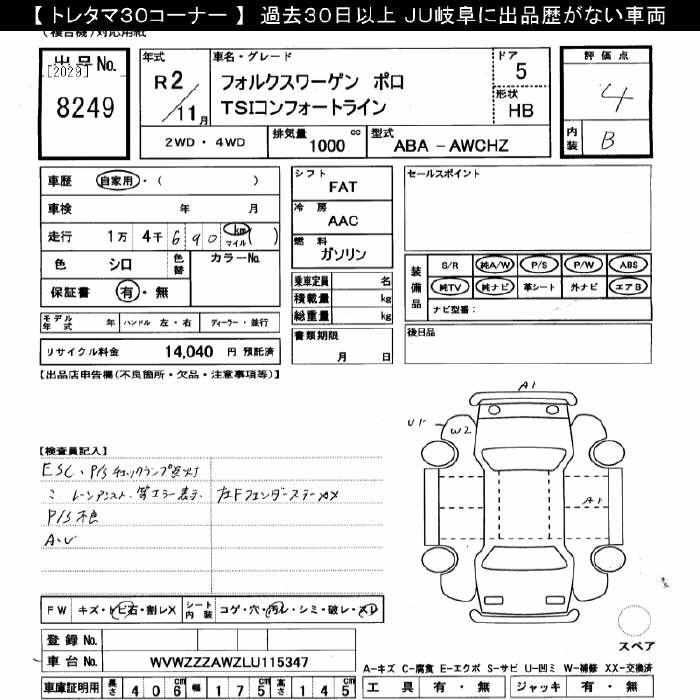 【 トレタマ30コーナー 】 過去30日以上 JU岐阜に出品歴がない車両
(複合機)対応用紙
出品No.
[2029]
8249
年式
R2/11月
車名・グレード
フォルクスワーゲン ポロ
TSIコンフォートライン
ドア
5
形状
HB
評価点
4
内装
B
2WD・4WD
排気量
1000 cc
型式
ABA - AWCHZ
車歴 自家用・( )
車検 年 月
走行 1万 4千 6 9 0 km マイル ( )
色 シロ 色替 カラーNo.
保証書 有・無
シフト
FAT
冷房
AAC
燃料
ガソリン
乗車定員 名
積載量 kg
総重量 kg
セールスポイント
装備品
S/R 純A/W P/S P/W ABS
純TV 純ナビ 革シート 外ナビ エアB
ナビ型番:
モデル年式 年 ハンドル 左・右 ディーラー・並行
リサイクル料金 14,040 円 預託済
書類期限
月 日
後日品
【出品店申告欄(不良箇所・欠品・注意事項等)】
A1
U1
W2
A1
【検査員記入】
ESC、P/Sチェックランプ点灯
レーンアシスト、等エラー表示、左FフェンダーステーXX
P/S不良
A・U
FW キズ・トビ石・割レX シート内装 コゲ・穴・汚レ・シミ・破レ・スレ
登録No.
車台No. WVWZZZAWZLU115347
スペア
A-キズ C-腐食 E-エクボ S-サビ U-凹ミ W-補修 XX-交換済
車庫証明用 長さ 406cm 幅 175cm 高さ 145cm
工具 有・無 ジャッキ 有・無